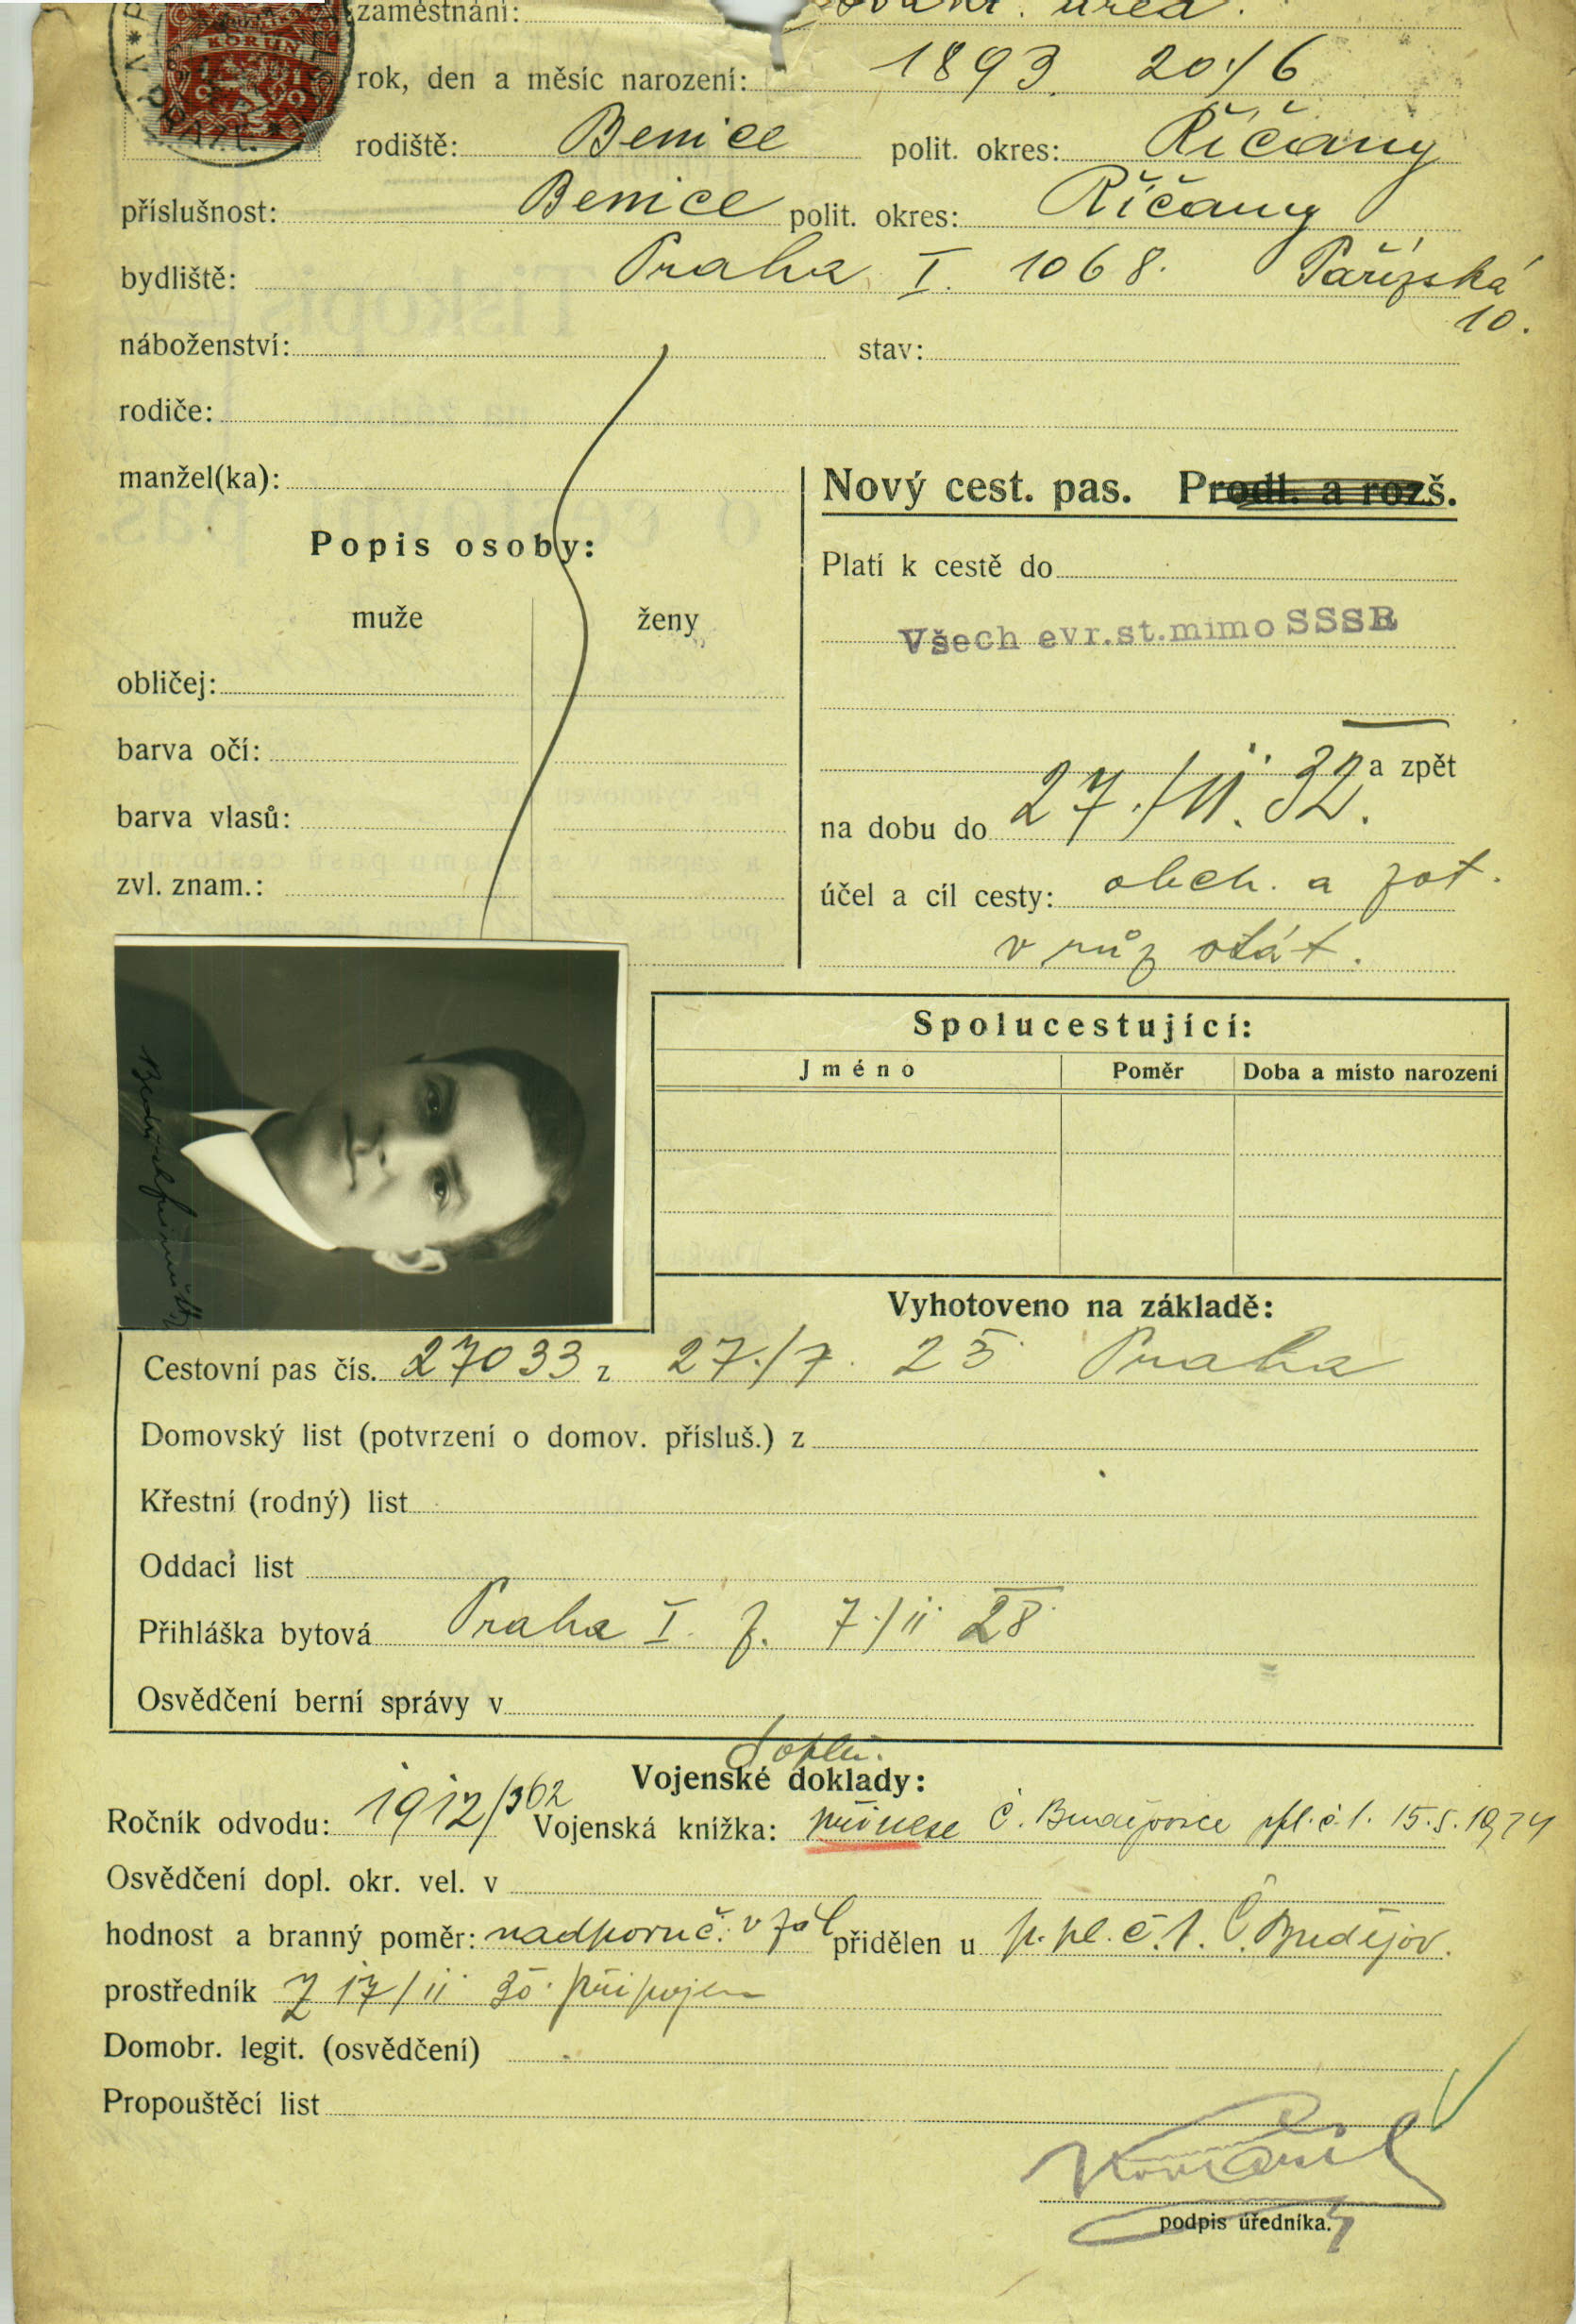 zaměstnání: úřed.
KORUN
rok, den a měsíc narození: 1893. 20./6
rodiště: Benice polit. okres: Říčany
příslušnost: Benice polit. okres: Říčany
bydliště: Praha I. 1068. Pařížská
10.
náboženství: stav:
rodiče:
manžel(ka):
Nový cest. pas. Prodl. a rozš.
Popis osoby:
Platí k cestě do
muže ženy
Všech evr.st.mimo SSSR
obličej:
barva očí:
a zpět
barva vlasů:
na dobu do 27./II. 32.
zvl. znam.:
účel a cíl cesty: obch. a zot.
v růz stát.
Spolucestující:
Jméno Poměr Doba a místo narození
Vyhotoveno na základě:
Cestovní pas čís. 27033 z 27./7. 25 Praha
Domovský list (potvrzení o domov. přísluš.) z
Křestní (rodný) list
Oddací list
Přihláška bytová Praha I. z. 7./II 28
Osvědčení berní správy v
Vojenské doklady:
Ročník odvodu: 1912/362 Vojenská knížka: přinese Č. Budějovice pl. č. 1. 15.5.1924
Osvědčení dopl. okr. vel. v
hodnost a branný poměr: nadporuč. v zál přidělen u p. pl. č. 1. Č. Budějov.
prostředník Z 17/II 30 připojen
Domobr. legit. (osvědčení)
Propouštěcí list
podpis úředníka.